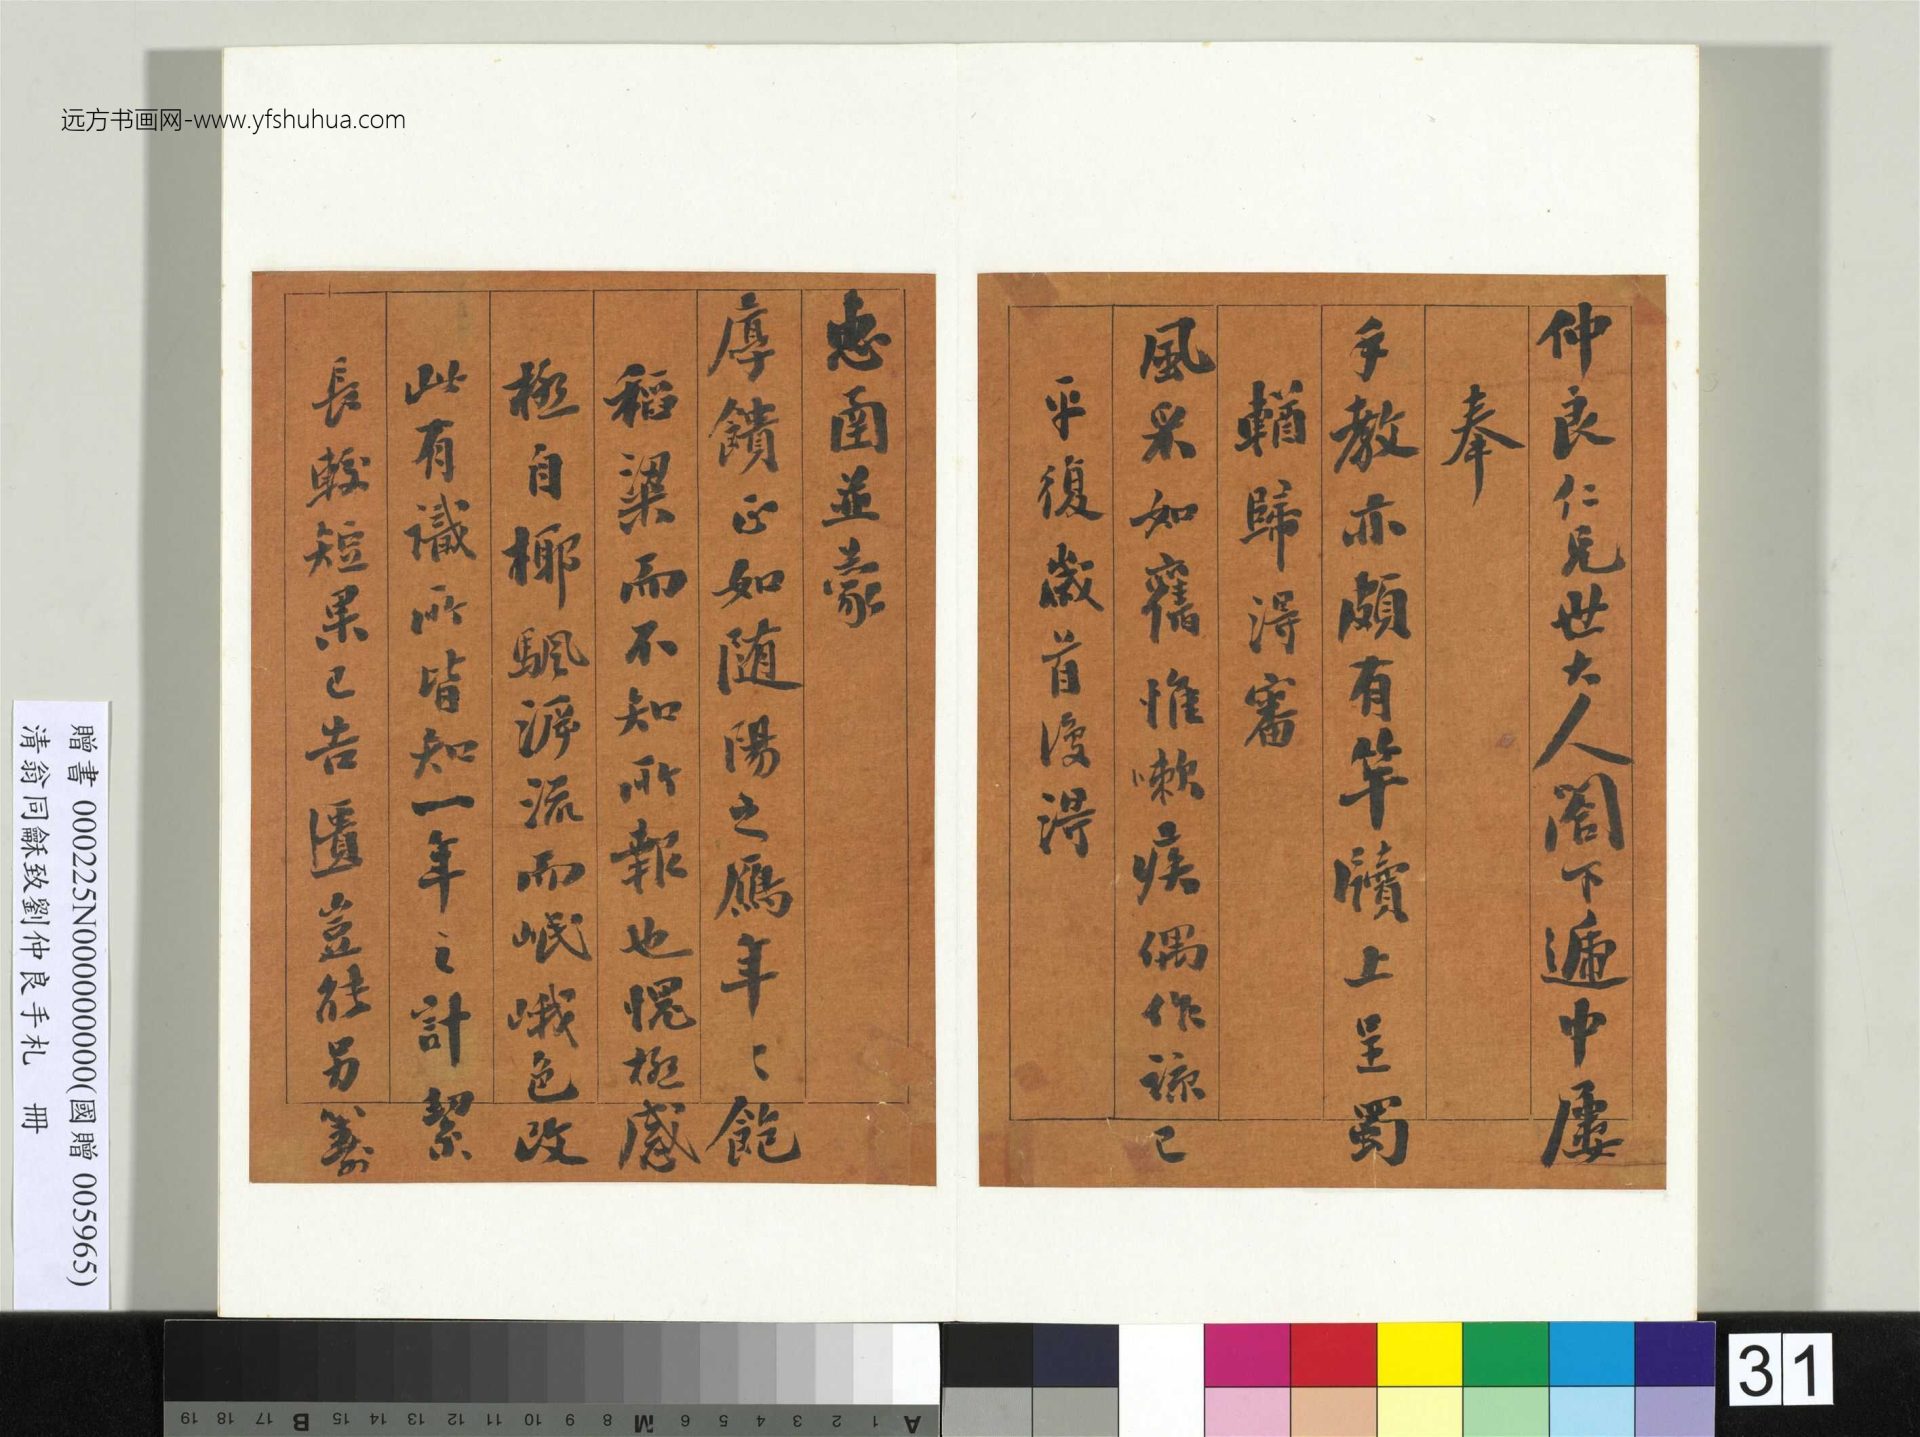 远方书画网-www.yfshuhua.com
仲良仁兄世大人閣下遞中屢
奉
手教亦頗有竿牘上呈蜀
輶歸得審
風采如舊惟嗽疾偶作諒已
平復歲首復得
惠函並蒙
厚饋正如随陽之雁年〻飽
稻粱而不知所報也愧極感
極自椰颿游流而岷峨色改
此有識所皆知一年之計絜
長較短果已告匱豈能另籌
贈書 000225N000000000(國贈 005965)
清翁同龢致劉仲良手札 冊
31
A 1 2 3 4 5 6 M 8 9 10 11 12 13 14 15 B 17 18 19